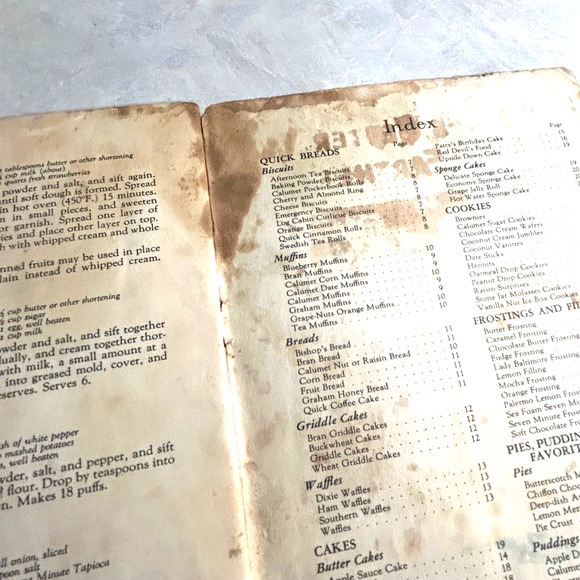 tablespoons butter or other shortening
cup milk (about)
quarts fresh strawberries
powder and salt, and sift again.
until soft dough is formed. Spread
in hot oven (450°F.) 15 minutes.
in small pieces, and sweeten
or garnish. Spread one layer of
ries and place other layer on top.
h with whipped cream and whole
nned fruits may be used in place
lain instead of whipped cream.
cup butter or other shortening
cup sugar
egg, well beaten
cup milk
owder and salt, and sift together
dually, and cream together thor-
with milk, a small amount at a
into greased mold, cover, and
eserves. Serves 6.
sh of white pepper
mashed potatoes
s, well beaten
owder, salt, and pepper, and sift
flour. Drop by teaspoons into
en. Makes 18 puffs.
ll onion, sliced
poon salt
Minute Tapioca
Index
QUICK BREADS Page
Biscuits
Afternoon Tea Biscuits 7
Baking Powder Biscuits
Calumet Pocketbook Rolls
Cherry and Almond Ring
Cheese Biscuits
Emergency Biscuits
Log Cabin Curlicue Biscuits
Orange Biscuits
Quick Cinnamon Rolls 8
Swedish Tea Rolls 8
Muffins
Blueberry Muffins 10
Bran Muffins 9
Calumet Corn Muffins 10
Calumet Date Muffins 9
Calumet Muffins 9
Graham Muffins 9
Grape-Nuts Orange Muffins 10
Tea Muffins 10
Breads
Bishop's Bread 11
Bran Bread 11
Calumet Nut or Raisin Bread 10
Corn Bread 11
Fruit Bread 11
Graham Honey Bread 11
Quick Coffee Cake 11
Griddle Cakes
Bran Griddle Cakes 12
Buckwheat Cakes 12
Griddle Cakes 12
Wheat Griddle Cakes 12
Waffles
Dixie Waffles 13
Ham Waffles 13
Southern Waffles 13
Waffles 13
CAKES
Butter Cakes 19
Apple Sauce Cake 14
18
Page
Patty's Birthday Cake 15
Red Devil's Food 16
Upside Down Cake 19
Sponge Cakes
Delicious Sponge Cake 19
Economy Sponge Cake 20
Grape Jelly Roll
Hot Water Sponge Cake
COOKIES
Brownies
Calumet Sugar Cookies
Chocolate Cream Wafers
Coconut Cream Jumbles
Coconut Vanities
Date Sticks
Hermits
Oatmeal Drop Cookies
Peanut Drop Cookies
Raisin Surprises
Stone Jar Molasses Cookies
Vanilla Nut Ice Box Cookies
FROSTINGS AND FI
Butter Frosting
Caramel Frosting
Chocolate Butter Frosting
Fudge Frosting
Lady Baltimore Frosting
Lemon Filling
Mocha Frosting
Orange Frosting
Palermo Lemon Frosting
Sea Foam Seven Minu
Seven Minute Frosting
Soft Chocolate Fros
PIES, PUDDIN
FAVORIT
Pies
Butterscotch M
Chiffon Choc
Deep-dish A
Lemon Mer
Pie Crust
Puddings
Apple D
Calume